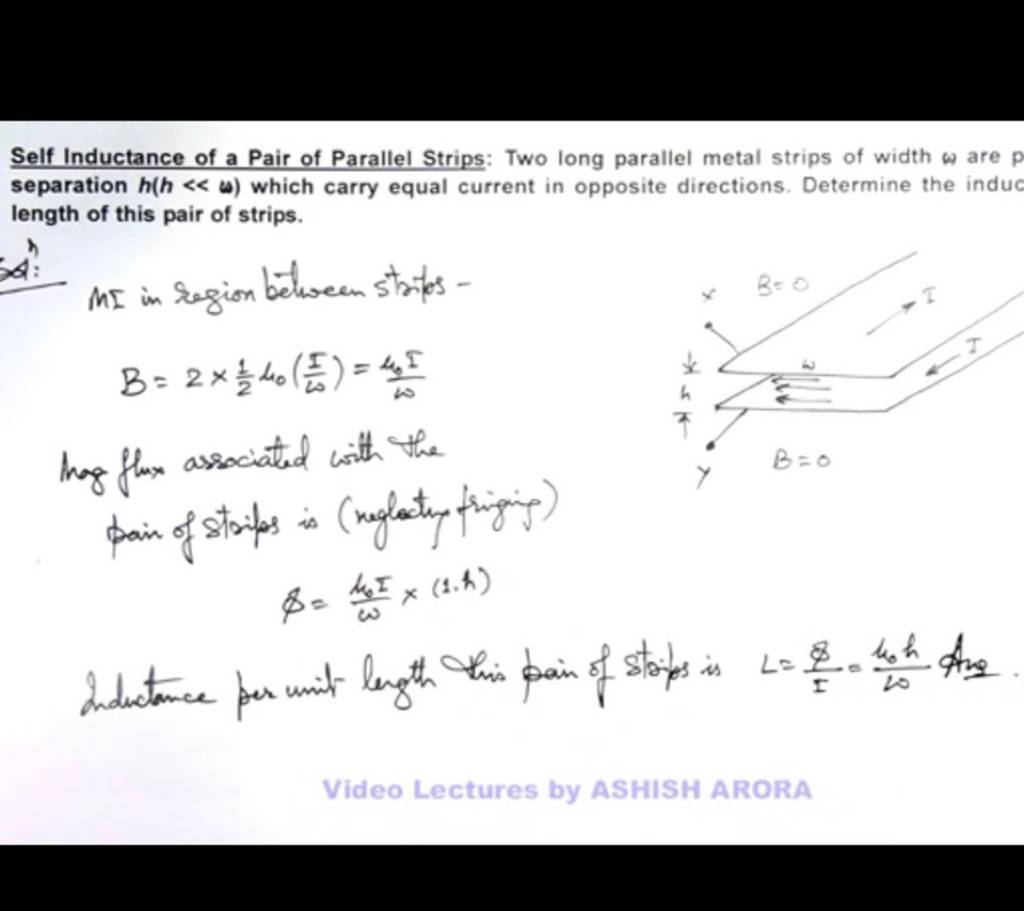 Self Inductance of a Pair of Parallel Strips: Two long parallel metal strips of width ω are p
separation h(h << ω) which carry equal current in opposite directions. Determine the induc
length of this pair of strips.
Solⁿ:
MI in region between strips -
B = 2 × ½ μ₀ (I/ω) = μ₀I/ω
Mag flux associated with the
pair of strips is (neglecting fringing)
φ = μ₀I/ω × (1.h)
Inductance per unit length this pair of strips is L = φ/I = μ₀h/ω Ans.
X
B = 0
I
I
ω
h
Y
B = 0
Video Lectures by ASHISH ARORA